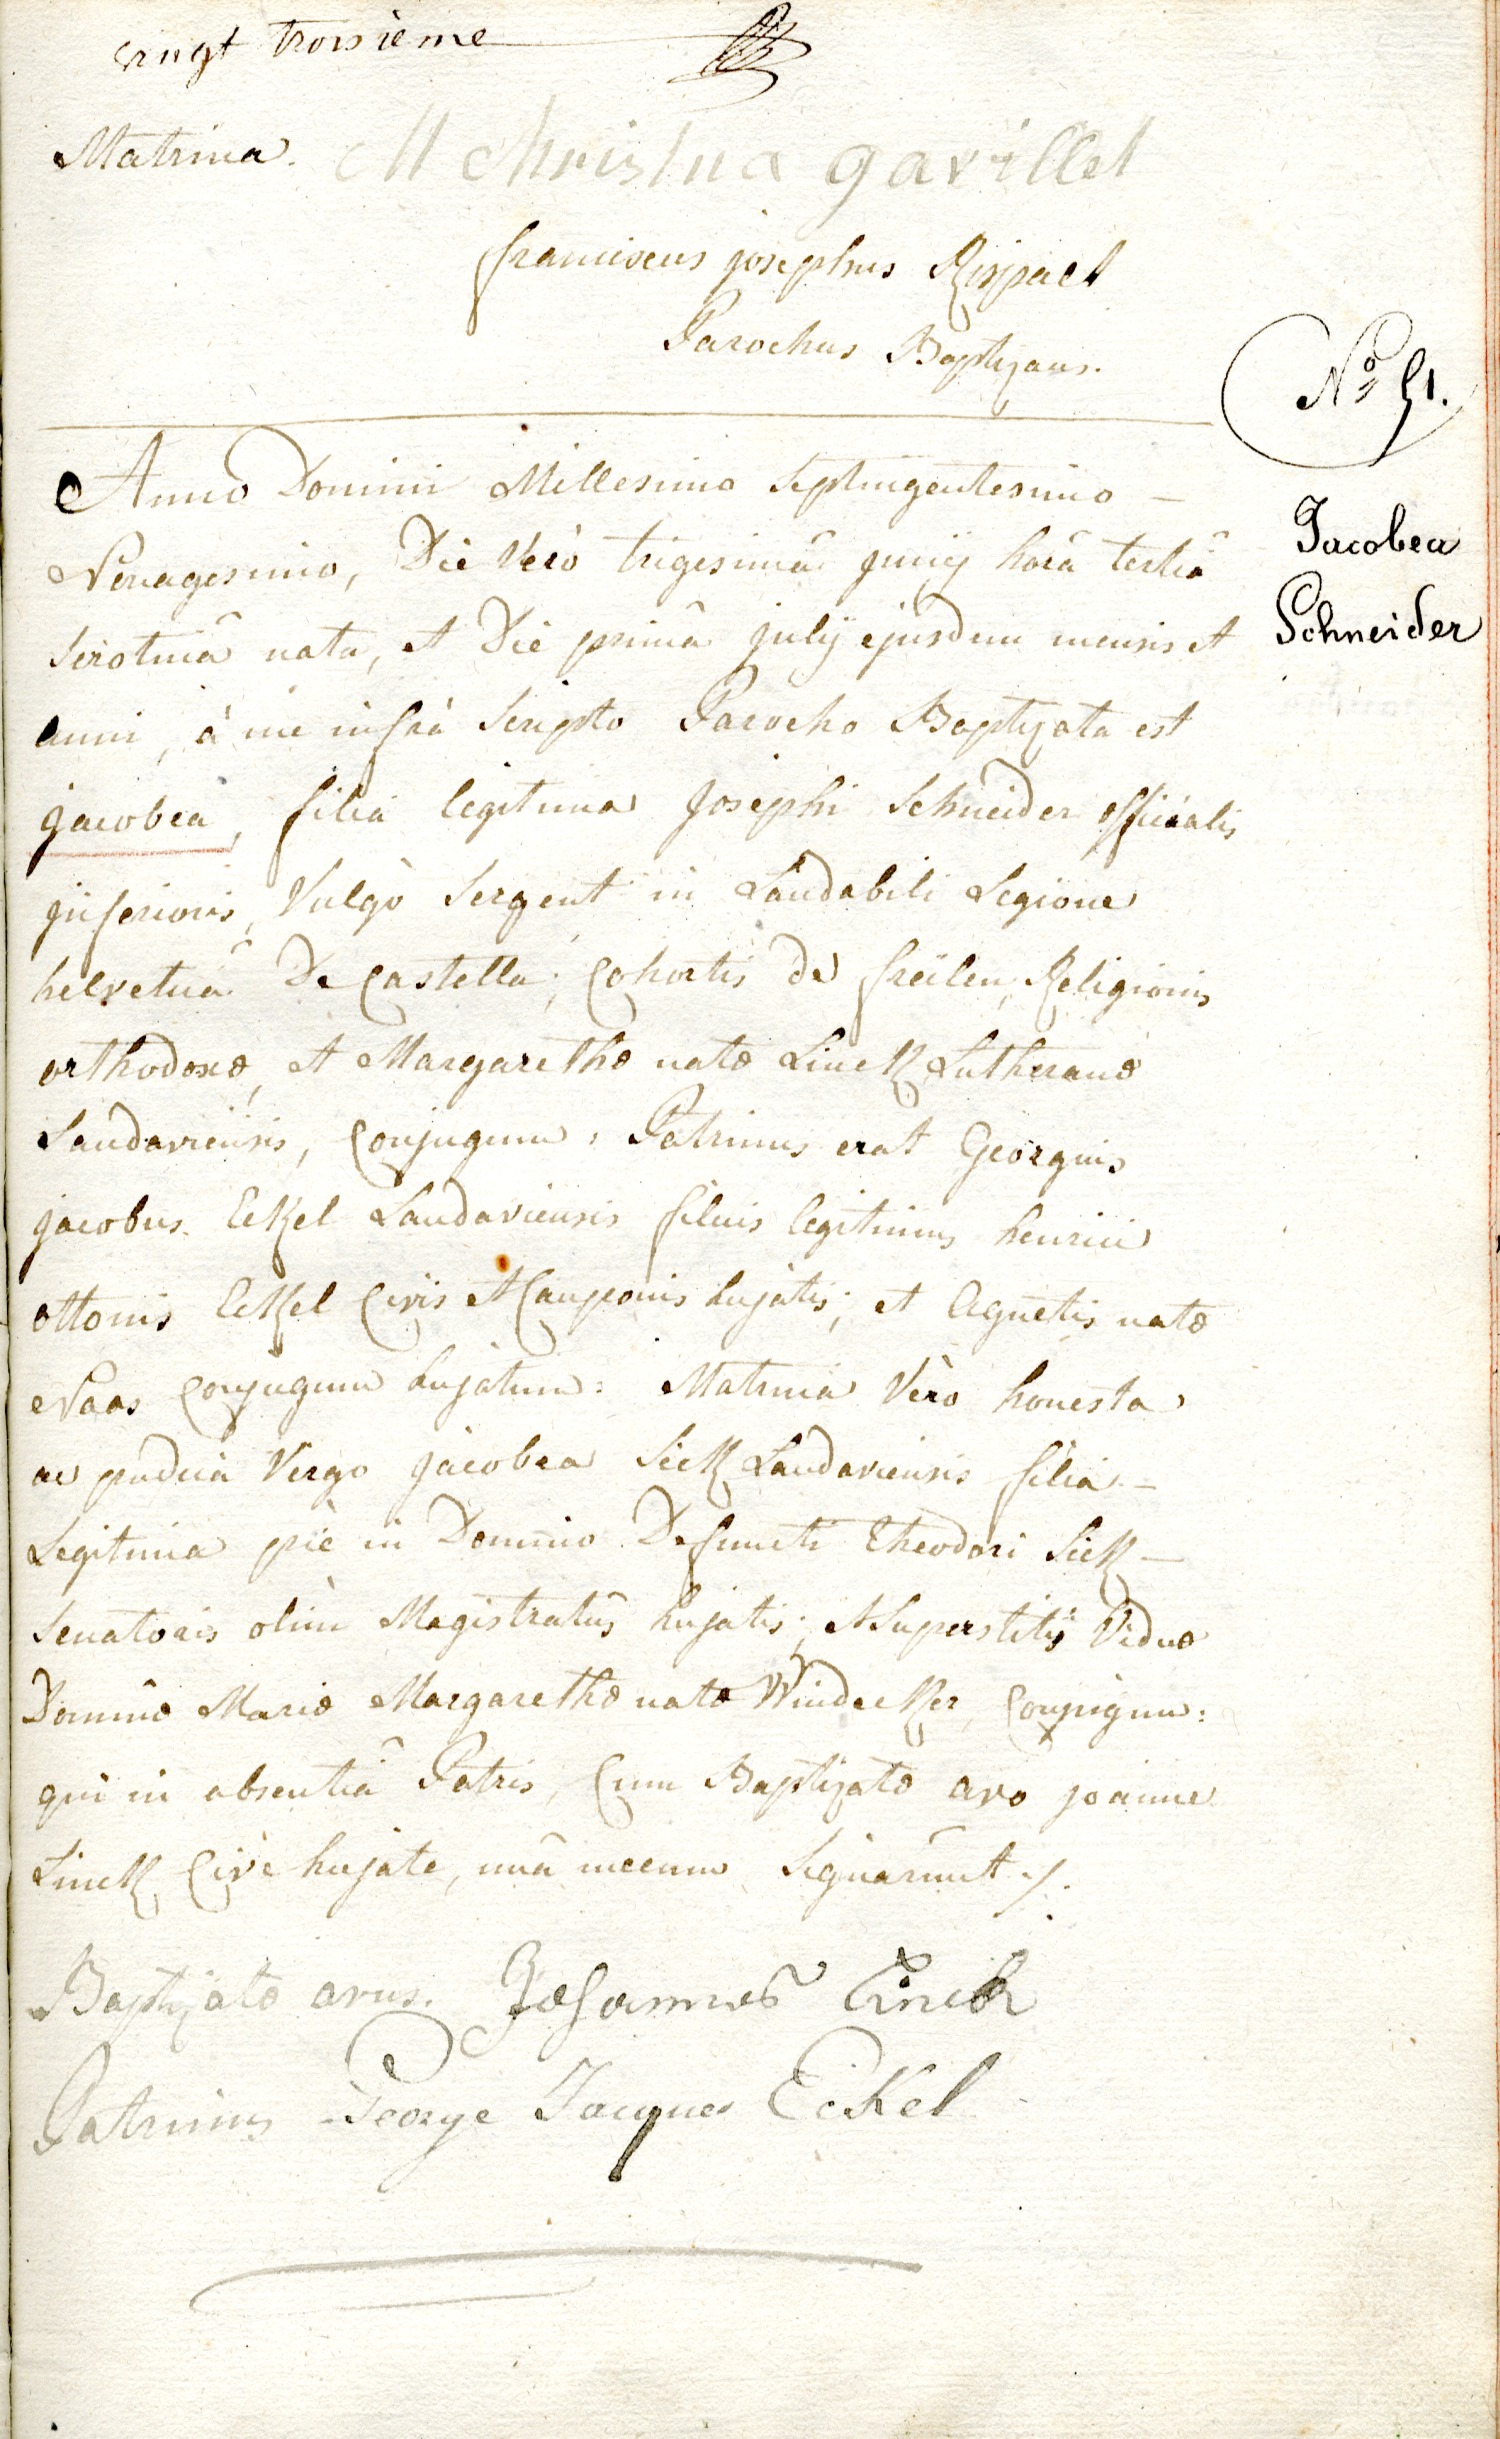 vingt troisieme
Matrina. M Christina gavillet
franciscus josephus Rispact
Parochus Baptizans.
Nº 51.
Jacobea
Schneider
Anno Domini Millesimo Septingentesimo –
Nonagesimo, Die Verò trigesimâ Junij horâ tertiâ
Serotinâ nata, et Die primâ Julij ejusdem mensis et
anni, à me infrà Scripto Parocho Baptizata est
jacobea, filia legitima Josephi Schneider officialis
inferioris, Vulgò Sergent in Laudabili Legione
helveticâ De Castella, Cohortis de freülen, Religionis
orthodoxæ, et Margarethæ natæ Linck Lutheranæ
Landaviensis, Conjugum: Patrinus erat Georgius
jacobus Eckel Landaviensis filius legitimus henrici
ottonis Eckel Civis et Cauponis hujatis; et Agnetis natæ
Naas Conjugum hujatum: Matrina Vèro honesta
ac pudica Virgo jacobea Sick Landaviensis filia –
Legitima piè in Domino Defuncti Theodori Sick –
Senatoris olim Magistratûs hujatis, et Superstitis Viduæ
Dominæ Mariæ Margarethæ natæ Windecker, Conjugum:
qui in absentiâ Patris, Cum Baptizatæ avo joanne
Linck Cive hujate, unâ mecum Signarunt ./.
Baptizatæ avus. Johannes Linck
Patrinus George Jacques Eckel